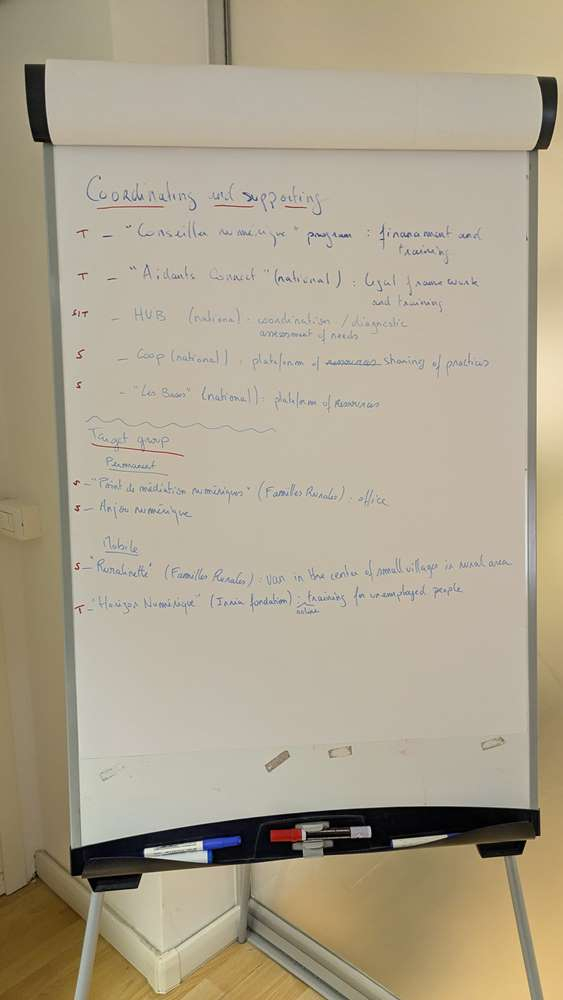 Coordinating and supporting
T - "Conseiller numérique" program : financament and
training
T - "Aidants Connect" (national) : legal framework
and training
S/T - HUB (national) : coordination / diagnostic
assessment of needs
S - Coop (national) : plateform of ressources sharing of practices
S - "Les Bases" (national) : plateform of resources
Target group
Permanent
S - "Point de médiation numériques" (Familles Rurales) : office
S - Anjou numérique
Mobile
S - "Ruralinette" (Familles Rurales) : van in the center of small villages in rural area
T - "Horizon Numérique" (Inria fondation) : training for unemployed people
online